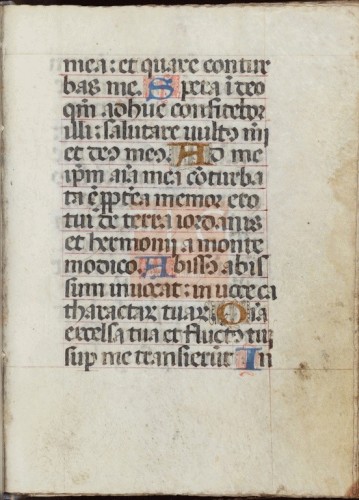 mea: et quare contur
bas me. Spera i deo
qm̄ adhuc confitebor
illi: salutare vultꝯ mī
et deꝯ meꝯ. Ad me
ip̄m aīa mea cōturba
ta ē ꝓpt̄ea memor ero
tui de terra iordanis
et hermonij a monte
modico. Abissꝯ abis
sum inuocat: in uoce ca
tharactar̄ tuar̄ Oīa
excelsa tua et fluctꝯ tui
sup̄ me transierūt In